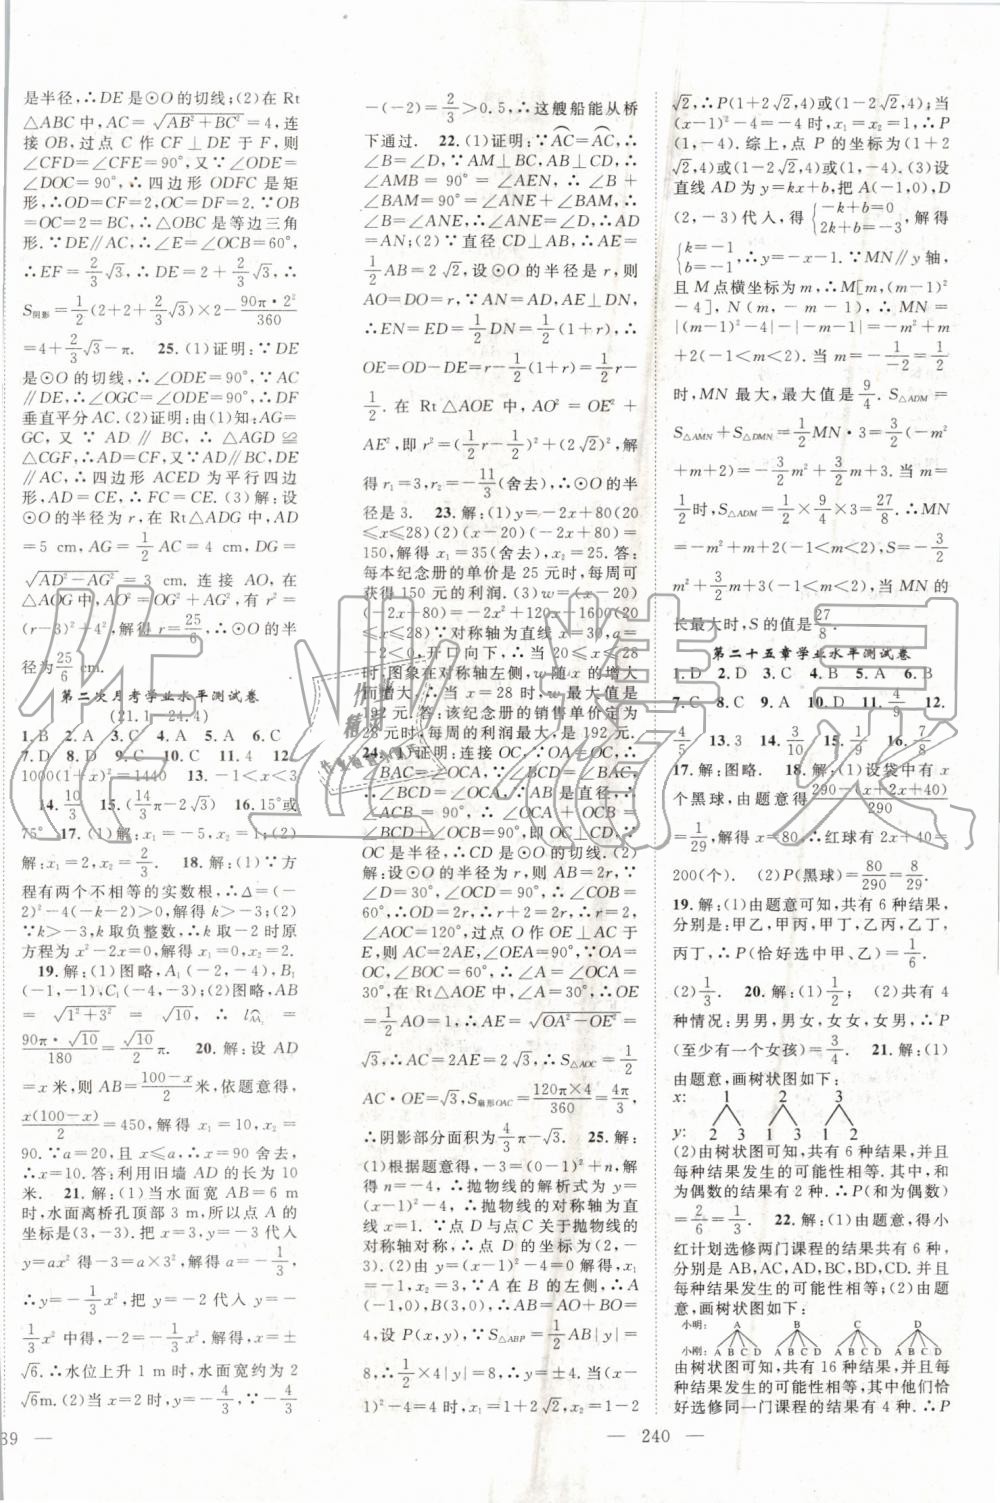 是半径,∴DE是⊙O的切线;(2)在Rt
△ABC中,AC=√(AB²+BC²)=4,连
接OB,过点C作CF⊥DE于F,则
∠CFD=∠CFE=90°,∵∠ODE=
∠DOC=90°,∴四边形ODFC是矩
形,∴OD=CF=2,OC=DF=2.∵OB
=OC=2=BC,∴△OBC是等边三角
形.∵DE∥AC,∴∠E=∠OCB=60°,
∴EF=2/3√3,∴DE=2+2/3√3,∴
S阴影=1/2(2+2+2/3√3)×2-90π·2²/360
=4+2/3√3-π. 25.(1)证明:∵DE
是⊙O的切线,∴∠ODE=90°,∵AC
∥DE,∴∠OGC=∠ODE=90°,∴DF
垂直平分AC.(2)证明:由(1)知:AG=
GC,又∵AD∥BC,∴△AGD≌
△CGF,∴AD=CF,又∵BC∥AD,DE
∥AC,∴四边形ACED为平行四边
形,AD=CE,∴CF=CE.(3)解:设
⊙O的半径为r,在Rt△ADG中,AD
=5 cm,AG=1/2AC=4 cm,DG=
√(AD²-AG²)=3 cm.连接AO,在Rt
△AOG中,AO²=OG²+AG²,有:r²=
(r-3)²+4²,解得r=25/6,∴⊙O的半
径为25/6 cm.
第二次月考学业水平测试卷
(21.1~24.4)
1.B 2.A 3.C 4.A 5.A 6.C
7.D 8.D 9.C 10.C 11.4 12.
1000(1+x)²=1440 13.-1<x<3
14.10/3 15.(14/3π-2√3) 16.15°或
75° 17.(1)解:x₁=-5,x₂=1;(2)
解:x₁=2,x₂=2/3. 18.解:(1)∵方
程有两个不相等的实数根,∴Δ=(-
2)²-4(-k-2)>0,解得k>-3;(2)
∵k>-3,k取负整数,∴k取-2时原
方程为x²-2x=0,解得x₁=0,x₂=2.
19.解:(1)图略,A₁(-2,-4),B₁
(-1,-1),C₁(-4,-3);(2)图略,AB
=√(1²+3²)=√10,∴l=
90π·√10/180=√10/2π. 20.解:设AD
=x米,则AB=100-x/2米,依题意得,
x(100-x)/2=450,解得x₁=10,x₂=
90.∵a=20,且x≤a,∴x=90舍去,
∴x=10.答:利用旧墙AD的长为10
米. 21.解:(1)当水面宽AB=6 m
时,水面离桥孔顶部3 m,所以点A的
坐标是(3,-3).把x=3,y=-3代入
y=ax²得-3=a×3²,解得a=-1/3,
∴y=-1/3x²,把y=-2代入y=-
1/3x²中得,-1/3x²=-2.解得,x=±
√6.∴水位上升1 m时,水面宽约为2
√6m.(2)当x=2时,y=-4/3,∵-4/3
39
-(-2)=2/3>0.5,∴这艘船能从桥
下通过. 22.(1)证明:∵AC=AC,∴
∠B=∠D,∵AM⊥BC,AB⊥CD,∴
∠AMB=90°=∠AEN,∴∠B+
∠BAM=90°=∠ANE+∠BAM,∴
∠B=∠ANE,∴∠ANE=∠D,∴AD
=AN;(2)∵直径CD⊥AB,∴AE=
1/2AB=2√2,设⊙O的半径是r,则
AO=DO=r,∵AN=AD,AE⊥DN,
∴EN=ED=1/2DN=1/2(1+r),∴
OE=OD-DE=r-1/2(1+r)=1/2r-
1/2.在Rt△AOE中,AO²=OE²+
AE²,即r²=(1/2r-1/2)²+(2√2)²,解
得r₁=3,r₂=-11/3(舍去),∴⊙O的半
径是3. 23.解:(1)y=-2x+80(20
≤x≤28)(2)(x-20)(-2x+80)=
150,解得x₁=35(舍去),x₂=25.答:
每本纪念册的单价是25元时,每周可
获得150元的利润.(3)w=(x-20)
(-2x+80)=-2x²+120x-1600(20
≤x≤28).∵对称轴为直线x=30,a=
-2<0,开口向下,∴当20≤x≤28
时,图象在对称轴左侧,w随x的增大
而增大,∴当x=28时,w最大=
192元.答:该纪念册的销售单价定为
28元时,每周的利润最大,是192元.
24.(1)证明:连接OC,∵OA=OC,∴
∠BAC=∠OCA,∵∠BCD=∠BAC,
∴∠BCD=∠OCA,∵AB是直径,∴
∠ACB=90°,∴∠OCA+∠OCB=
∠BCD+∠OCB=90°,即OC⊥CD.∵
OC是半径,∴CD是⊙O的切线.(2)
解:设⊙O的半径为r,则OB=OC=r,
∵∠D=30°,∠OCD=90°,∴∠COB=
60°,∴OD=2r,∴r+2=2r,∴r=2,
∠AOC=120°,过点O作OE⊥AC于
E,则AC=2AE,∠OEA=90°.∵OA=
OC,∠BOC=60°,∴∠A=∠OCA=
30°,在Rt△AOE中,∠A=30°,∴OE=
1/2AO=1,∴AE=√(OA²-OE²)=
√3,∴AC=2AE=2√3,∴S△AOC=1/2
AC·OE=√3,S扇形OAC=120π×4/360=4π/3,
∴阴影部分面积为4/3π-√3. 25.解:
(1)根据题意得-3=(0-1)²+n,解
得n=-4,∴抛物线的解析式为y=
(x-1)²-4,∴抛物线的对称轴为直线
x=1.∵点D与点C关于抛物线的
对称轴对称,∴点D的坐标为(2,-
3).(2)由y=(x-1)²-4=0,解得x₁=
-1,x₂=3,∵A在B的左侧,∴A
(-1,0),B(3,0),∴AB=AO+BO=
4,设P(x,y),∵S△ABP=1/2AB|y|=
8,∴1/2×4|y|=8,∴y=±4.当(x-
1)²-4=4时,x₁=1+2√2,x₂=1-2
√2,∴P(1+2√2,4)或(1-2√2,4);当
(x-1)²-4=-4时,x₁=x₂=1,∴P
(1,-4).综上,点P的坐标为(1+2
√2,4)或(1-2√2,4)或(1,-4).(3)设
直线AD为y=kx+b,把A(-1,0),D
(2,-3)代入,得{-k+b=0 2k+b=-3,解得
{k=-1 b=-1,∴y=-x-1.∵MN∥y轴,
且M点横坐标为m,∴M[m,(m-1)²
-4],N(m,-m-1),∴MN=
|(m-1)²-4|-|-m-1|=-m²+m
+2(-1<m<2).当m=-1/-2=1/2
时,MN最大,最大值是9/4.S△ADM=
S△AMN+S△DMN=1/2MN·3=3/2(-m²
+m+2)=-3/2m²+3/2m+3.当m=
1/2时,S△ADM=1/2×9/4×3=27/8.当MN=
-m²+m+2(-1<m<2),S=-3/2
m²+3/2m+3(-1<m<2),当MN的
长最大时,S的值是27/8.
第二十五章学业水平测试卷
1.D 2.D 3.C 4.B 5.A 6.B
7.C 8.C 9.A 10.D 11.4/9 12.
4/5 13.3 14.3/10 15.1/4 16.7/8
17.解:图略. 18.解:(1)设袋中有x
个黑球,由题意得290-(x+2x+40)/290
=1/29,解得x=80.∴红球有2x+40=
200(个). (2)P(黑球)=80/290=8/29.
19.解:(1)由题意可知,共有6种结果,
分别是:甲乙,甲丙,甲丁,乙丙,乙丁,
丙丁,∴P(恰好选中甲、乙)=1/6.
(2)1/3. 20.解:(1)1/2; (2)共有4
种情况:男男,男女,女女,女男,∴P
(至少有一个女孩)=3/4. 21.解:(1)
由题意,画树状图如下:
x: 1 2 3
y: 2 3 1 3 1 2
(2)由树状图可知,共有6种结果,并且
每种结果发生的可能性相等.其中,和
为偶数的结果有2种.∴P(和为偶数)
=2/6=1/3. 22.解:(1)由题意,得小
红计划选修两门课程的结果共有6种,
分别是AB,AC,AD,BC,BD,CD,并且
每种结果发生的可能性相等;(2)由题
意,画树状图如下:
小明: A B C D
小刚: A B C D A B C D A B C D A B C D
由树状图可知,共有16种结果,并且每
种结果发生的可能性相等.其中他俩恰
好选修同一门课程的结果有4种.∴P
— 240 —